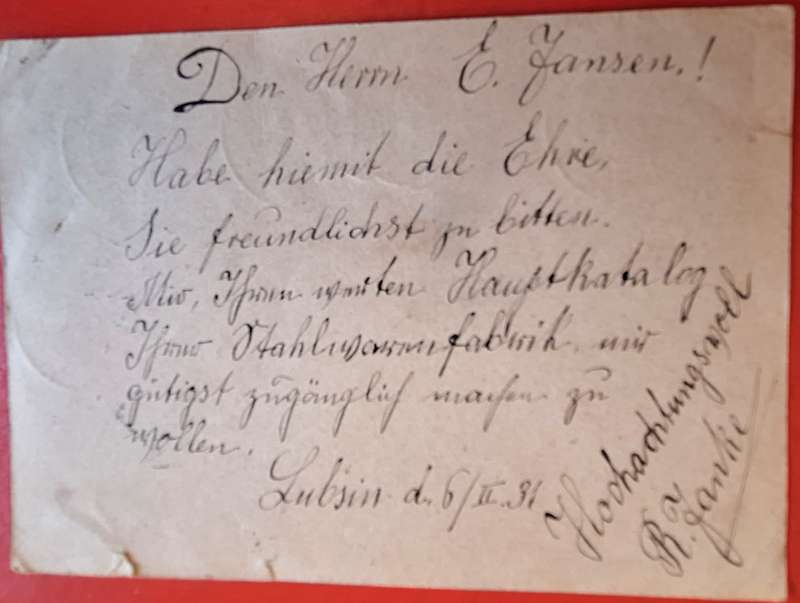 Den Herrn E. Jansen.!
Habe hiemit die Ehre,
Sie freundlichst zu bitten.
Mir, Ihren werten Hauptkatalog
Ihrer Stahlwarenfabrik mir
gütigst zugänglich machen zu
wollen.
Lubsin d. 6/II.31
Hochachtungsvoll
R. Janke